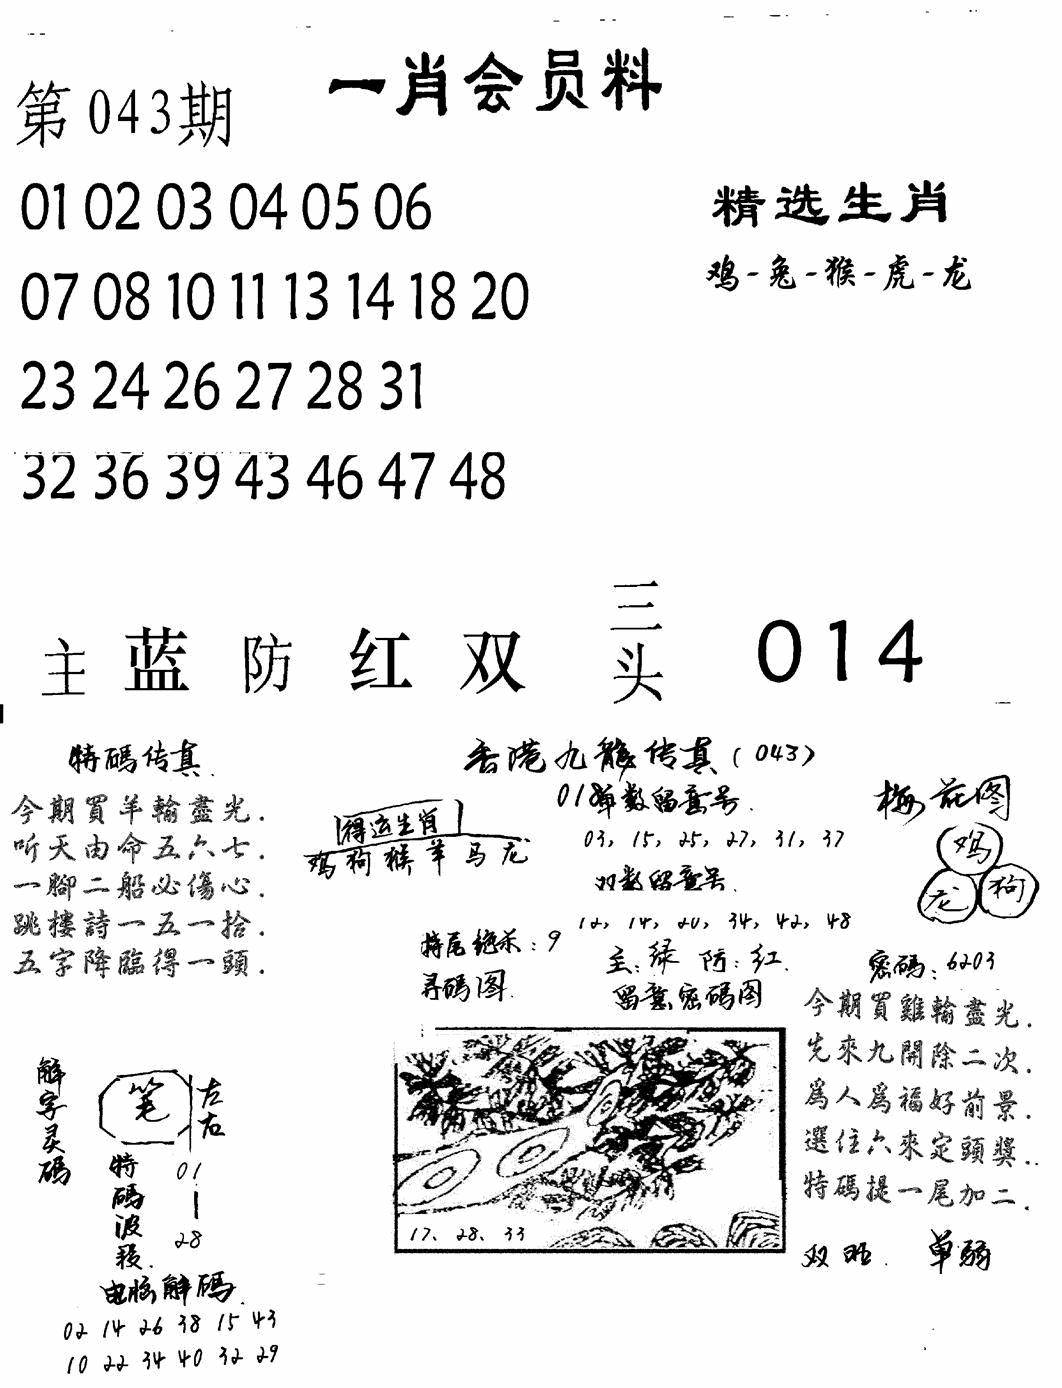 一肖会员料
第043期
01 02 03 04 05 06
07 08 10 11 13 14 18 20
23 24 26 27 28 31
32 36 39 43 46 47 48
精选生肖
鸡-兔-猴-虎-龙
主 蓝 防 红 双 三头 014
特碼传真
今期買羊輸盡光.
听天由命五六七.
一腳二船必傷心.
跳樓詩一五一拾.
五字降臨得一頭.
香港九龍传真(043)
得运生肖
鸡狗猴羊马龙
018单数留意号.
03, 15, 25, 27, 31, 37
双数留意号.
12, 14, 20, 34, 42, 48
特尾绝杀:9
主:绿 防:红.
寻碼图.
留意密碼图
17、28、33
梅花图
鸡
龙
狗
密碼:6203
今期買雞輸盡光.
先來九開除二次.
爲人爲福好前景.
選住六來定頭獎..
特碼提一尾加二.
双旺. 单弱
解字灵碼
笔
左右
特碼波段.
01—28
电脑解碼.
02 14 26 38 15 43
10 22 34 40 32 29